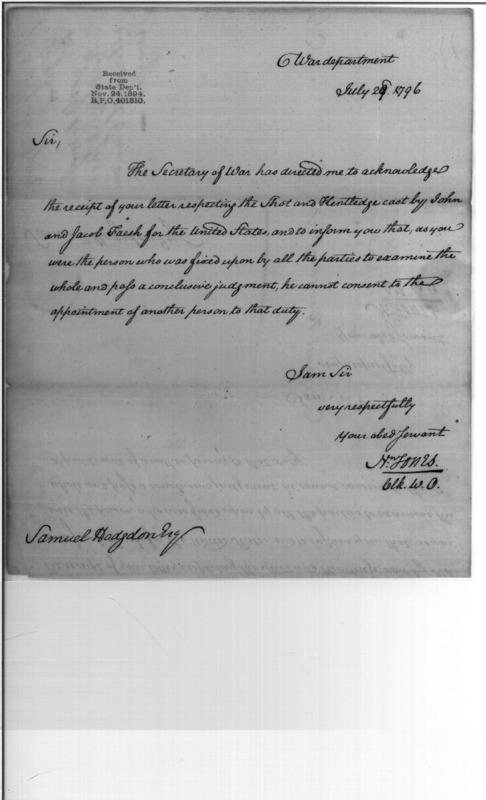 Received
from
State Dep't.
Nov. 24. 1894.
R.P.O. 401310.
War department
July 29 1796
Sir,
The Secretary of War has directed me to acknowledge
the receipt of your letter respecting the Shot and Kentledge cast by John
and Jacob Faesh for the United States, and to inform you that, as you
were the person who was fixed upon by all the parties to examine the
whole and pass a conclusive judgment, he cannot consent to the
appointment of another person to that duty.
I am Sir
very respectfully
Your obed Servant
Nn Jones.
Clk. W. O.
Samuel Hodgdon Esq